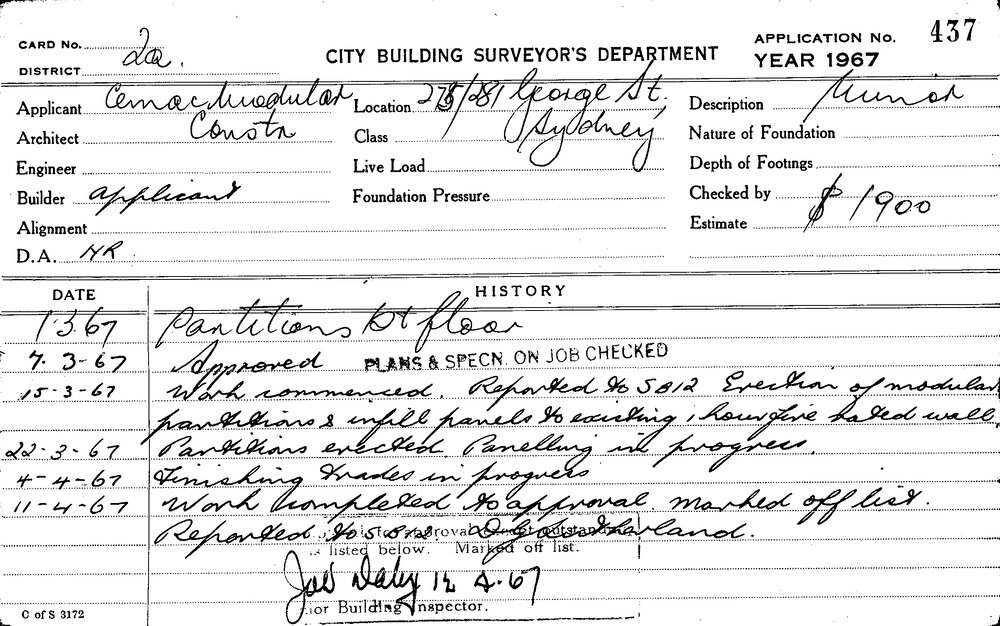 CARD No. 2a.
DISTRICT
CITY BUILDING SURVEYOR'S DEPARTMENT
APPLICATION No. 437
YEAR 1967
Applicant Cemac Modular
Location 275/281 George St,
Description Minor
Architect Constr
Class Sydney
Nature of Foundation
Engineer
Live Load
Depth of Footings
Builder applicant
Foundation Pressure
Checked by
Estimate $ 1900
Alignment
D.A. NR
DATE HISTORY
1.3.67 Partitions 1st floor
7.3-67 Approved PLANS & SPECN. ON JOB CHECKED
15-3-67 Work commenced. Reported to SB12 Erection of modular
partitions & infill panels to existing 1 hour fire rated wall.
22-3-67 Partitions erected. Panelling in progress.
4-4-67 Finishing trades in progress
11-4-67 Work completed to approval. Marked off list.
Reported to
approval outstanding
listed below. Marked off list.
12 4.67
ior Building Inspector.
C of S 3172